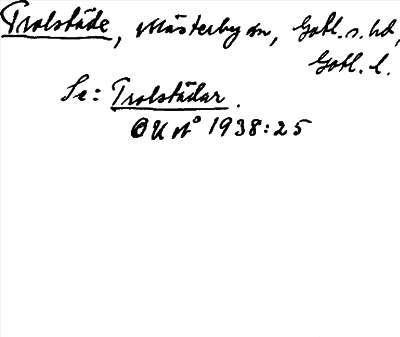 Trolstäde, Mästerby sn, Gotl. s. hd,
Gotl. l.
Se: Trolstädar.
OU nº 1938:25